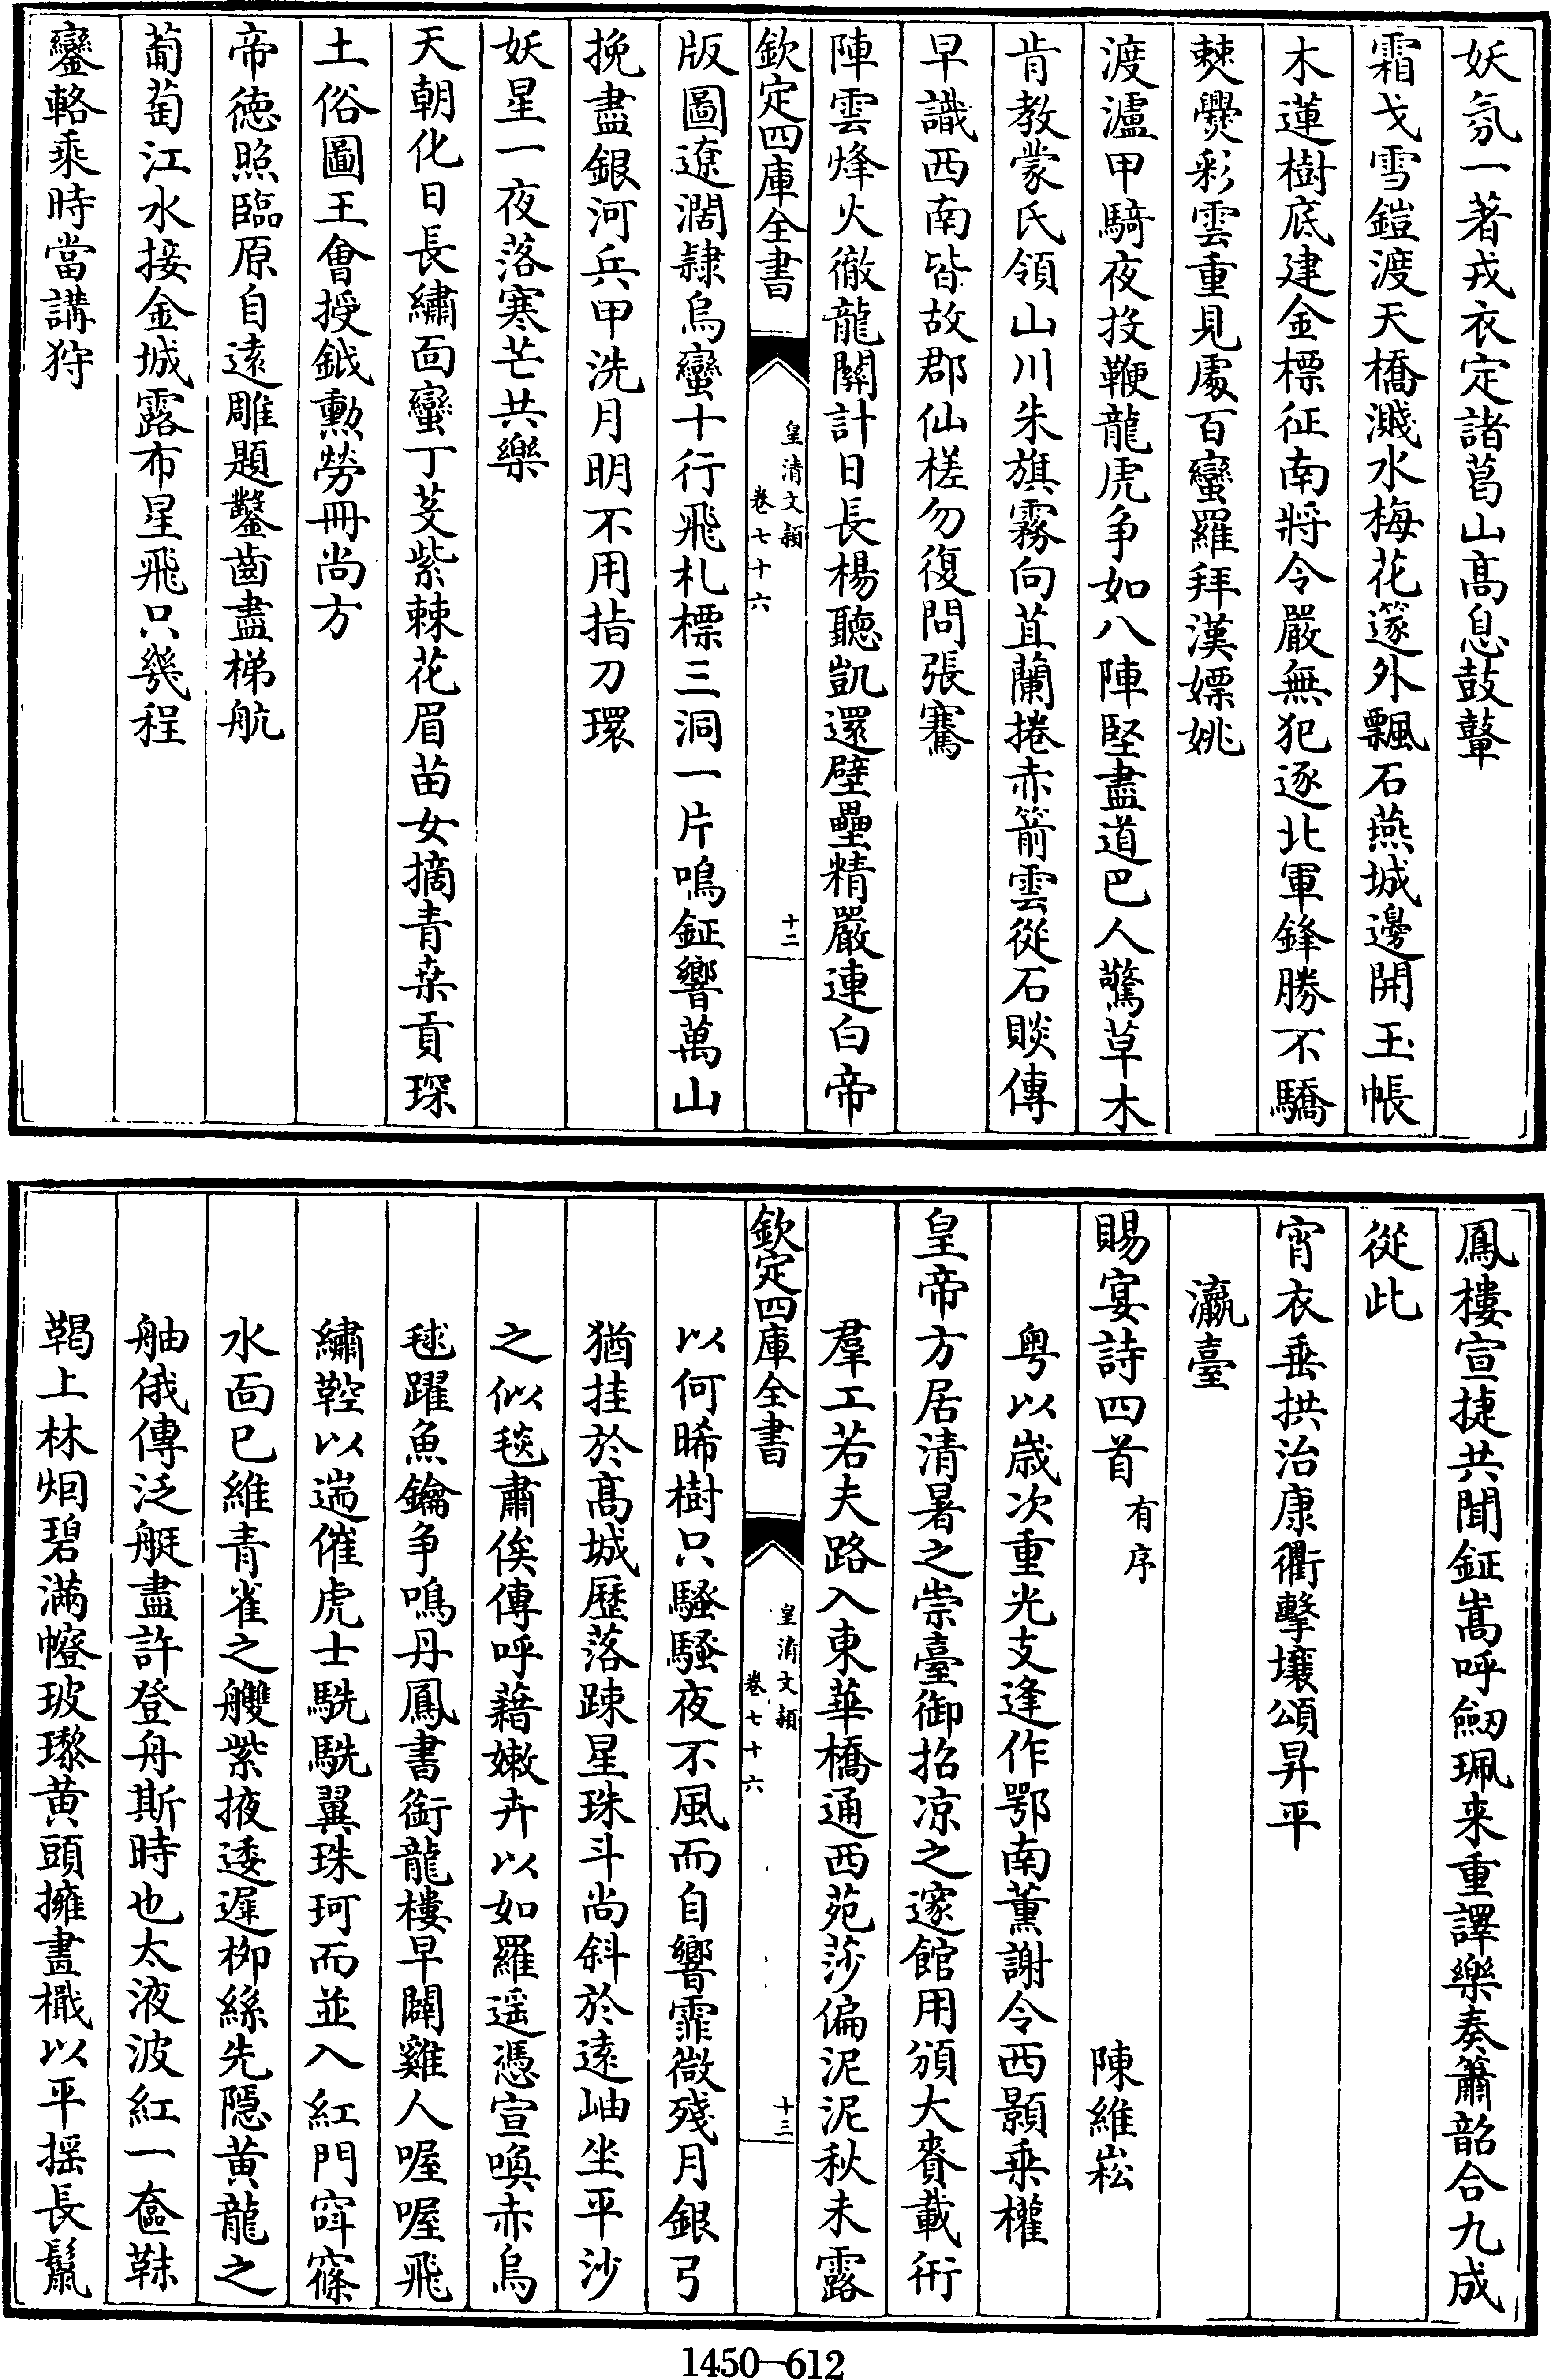 妖氛一著戎衣定諸葛山高息鼓鼙
霜戈雪鎧渡天橋濺水梅花篴外飄石燕城邊開玉帳
木蓮樹底建金標征南將令嚴無犯逐北軍鋒勝不驕
僰爨彩雲重見處百蠻羅拜漢嫖姚
渡瀘甲騎夜投鞭龍虎争如八陣堅盡道巴人驚草木
肯教蒙氏領山川朱旗霧向苴蘭捲赤箭雲從石賧傳
早識西南皆故郡仙槎勿復問張騫
陣雲烽火徹龍關計日長楊聽凱還壁壘精嚴連白帝
欽定四庫全書
皇清文穎
卷七十六
十二
版圖遼濶隷烏蠻十行飛札標三洞一片鳴鉦響萬山
挽盡銀河兵甲洗月明不用指刀環
妖星一夜落寒芒共樂
天朝化日長繡面蠻丁芟紫棘花眉苗女摘青桒貢琛
土俗圖王會授鉞勲勞冊尚方
帝徳照臨原自遠雕題鑿齒盡梯航
葡萄江水接金城露布星飛只幾程
鑾輅乘時當講狩
鳳樓宣捷共聞鉦嵩呼劒珮来重譯樂奏簫韶合九成
從此
宵衣垂拱治康衢擊壤頌昇平
瀛臺
賜宴詩四首有序
陳維崧
粤以嵗次重光支逢作鄂南薫謝令西顥乗權
皇帝方居清暑之崇臺御招凉之邃館用頒大賚載衎
羣工若夫路入東華橋通西苑莎偏泥泥秋未露
欽定四庫全書
皇清文穎
卷七十六
十三
以何晞樹只騷騷夜不風而自響霏微殘月銀弓
猶挂於髙城歴落疎星珠斗尚斜於遠岫坐平沙
之似毯肅俟傳呼藉嫩卉以如羅遥憑宣喚赤烏
毬躍魚鑰争鳴丹鳳書銜龍樓早闢雞人喔喔飛
繡鞚以遄催虎士駪駪翼珠珂而並入紅門窲窱
水面已維青雀之艭紫掖逶遲栁絲先隱黄龍之
舳俄傳泛艇盡許登舟斯時也太液波紅一奩靺
鞨上林烟碧滿幰玻瓈黄頭擁畫檝以平揺長鬛
1450—612